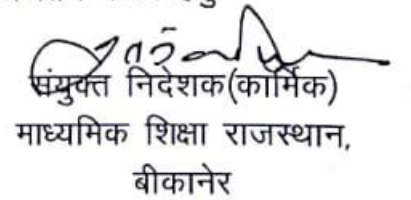 संयुक्त निदेशक(कार्मिक)
माध्यमिक शिक्षा राजस्थान,
बीकानेर